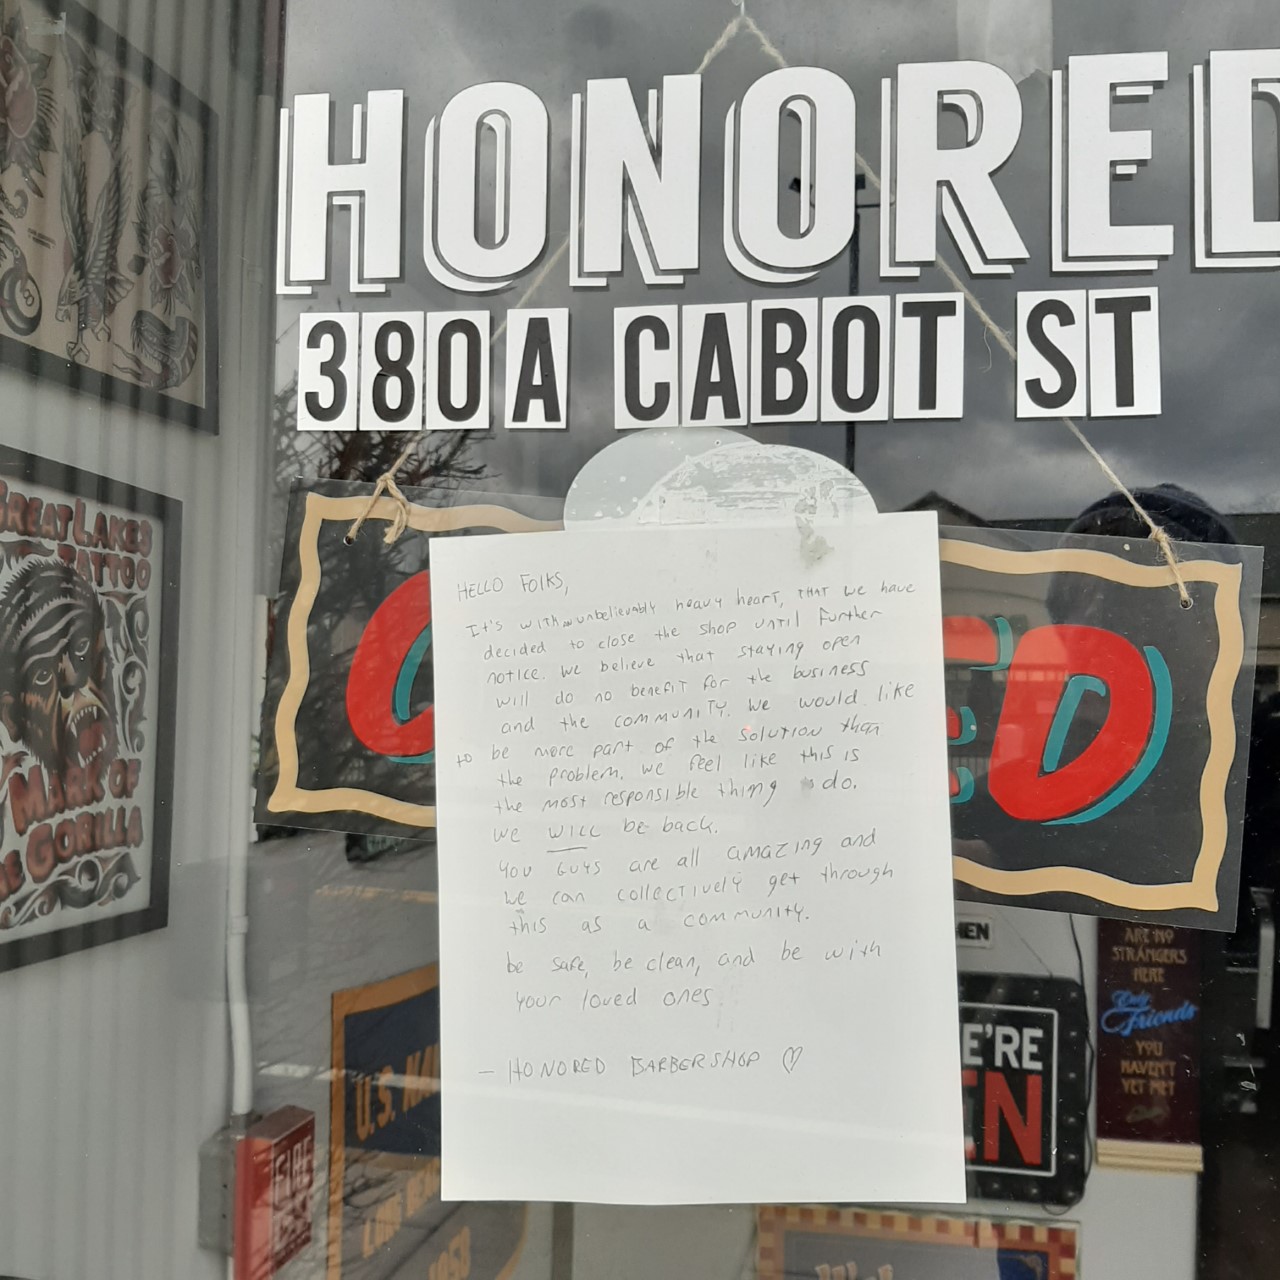 HONORED
380A CABOT ST
GREAT LAKES
TATTOO
MARK OF
THE GORILLA
HELLO FOLKS,
It's WITH an unbelievably heavy heart, THAT we have
decided to close the shop until further
notice. We believe that staying open
will do no benefit for the business
and the community. We would like
to be more part of the solution than
the problem. We feel like this is
the most responsible thing do.
We WILL be back.
You GUYS are all amazing and
we can collectively get through
this as a community.
be safe, be clean, and be with
your loved ones.
— HONORED BARBERSHOP ♡
C ED
E'RE
EN
ARE NO
STRANGERS
HERE
Only
Friends
YOU
HAVEN'T
YET MET
U.S. NA
1958
FIRE